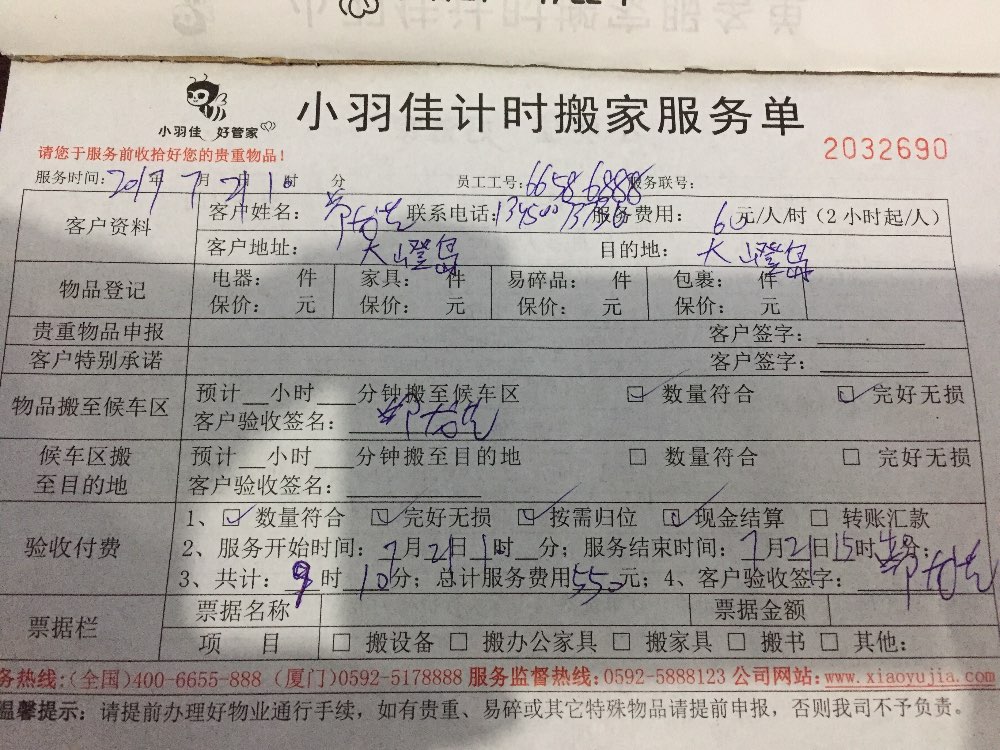 小羽佳计时搬家服务单
小羽佳 好管家
2032690
请您于服务前收拾好您的贵重物品!
服务时间: 2017年 7月 21日 时 分 员工工号: 6658 6888 服务联号:
客户资料 客户姓名: 联系电话: 服务费用: 60元/人/时(2小时起/人)
客户地址: 大嶝岛 目的地: 大嶝岛
物品登记 电器: 件 家具: 件 易碎品: 件 包裹: 件
保价: 元 保价: 元 保价: 元 保价: 元
贵重物品申报 客户签字:
客户特别承诺 客户签字:
物品搬至候车区 预计__小时___分钟搬至候车区 ☑ 数量符合 ☑ 完好无损
客户验收签名:
候车区搬至目的地 预计__小时___分钟搬至目的地 □ 数量符合 □ 完好无损
客户验收签名:
验收付费 1、☑ 数量符合 ☑ 完好无损 ☑ 按需归位 ☑ 现金结算 □ 转账汇款
2、服务开始时间: 7月21日 时 分; 服务结束时间: 7月21日15时 分;
3、共计: 9时10分; 总计服务费用550元; 4、客户验收签字:
票据栏 票据名称 票据金额
项 目 □ 搬设备 □ 搬办公家具 □ 搬家具 □ 搬书 □ 其他:
务热线:(全国)400-6655-888 (厦门)0592-5178888 服务监督热线:0592-5888123 公司网站:www.xiaoyujia.com
温馨提示: 请提前办理好物业通行手续, 如有贵重、易碎或其它特殊物品请提前申报, 否则我司不予负责。